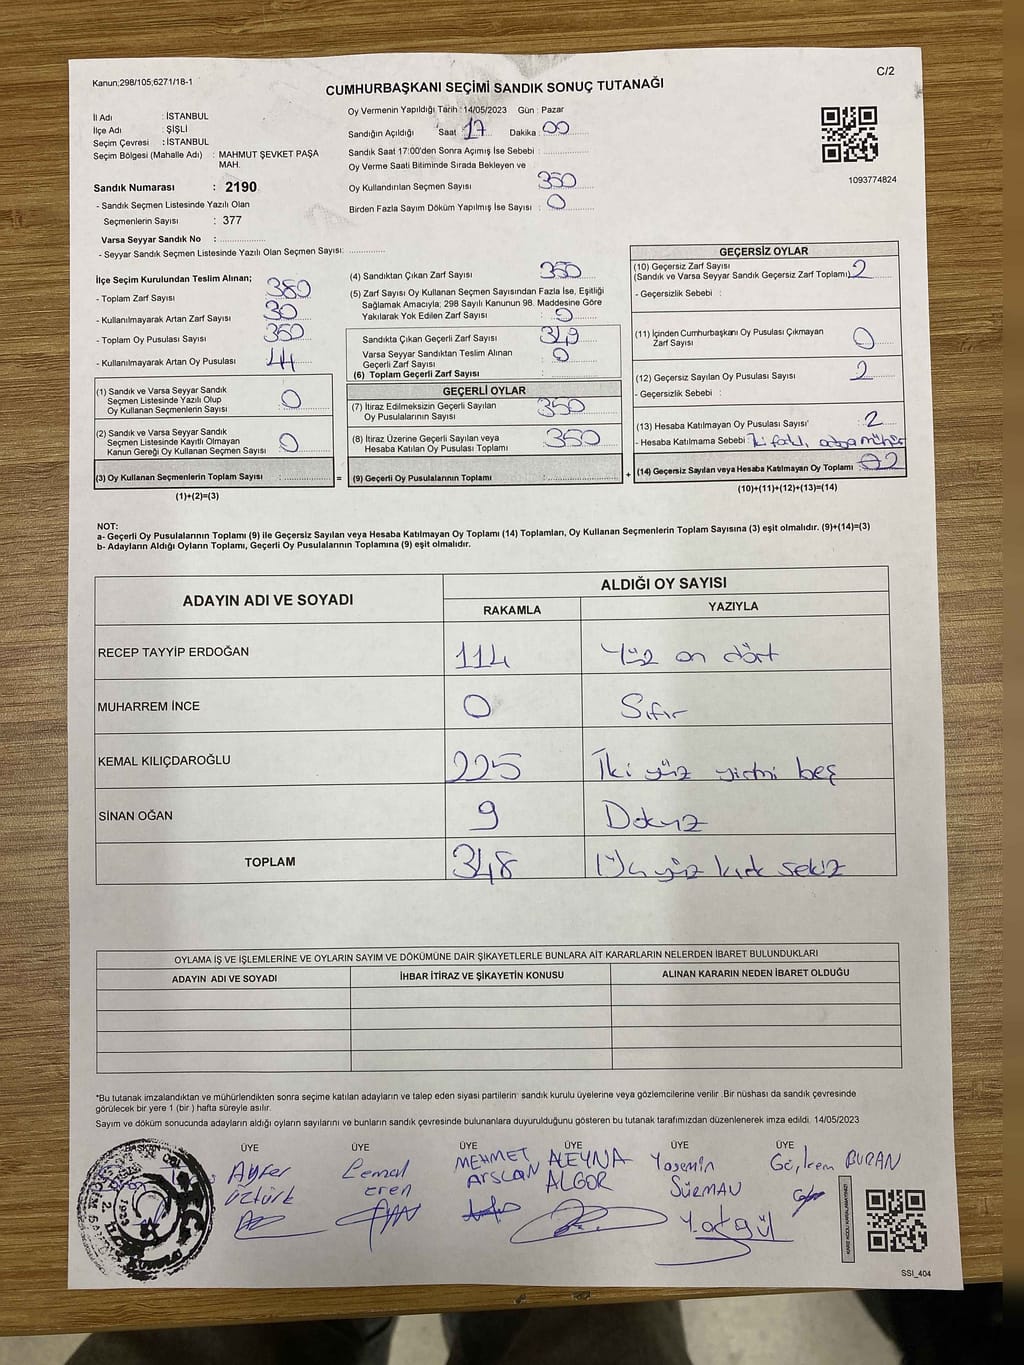 Kanun;298/105;6271/18-1
C/2
CUMHURBAŞKANI SEÇİMİ SANDIK SONUÇ TUTANAĞI
İl Adı : İSTANBUL
İlçe Adı : ŞİŞLİ
Seçim Çevresi : İSTANBUL
Seçim Bölgesi (Mahalle Adı) : MAHMUT ŞEVKET PAŞA
MAH.
Sandık Numarası : 2190
- Sandık Seçmen Listesinde Yazılı Olan
Seçmenlerin Sayısı : 377
Varsa Seyyar Sandık No :
- Seyyar Sandık Seçmen Listesinde Yazılı Olan Seçmen Sayısı:
Oy Vermenin Yapıldığı Tarih : 14/05/2023 Gün : Pazar
Sandığın Açıldığı Saat : 17 Dakika : 00
Sandık Saat 17:00'den Sonra Açımış İse Sebebi :
Oy Verme Saati Bitiminde Sırada Bekleyen ve
Oy Kullandırılan Seçmen Sayısı : 350
Birden Fazla Sayım Döküm Yapılmış İse Sayısı : 0
1093774824
İlçe Seçim Kurulundan Teslim Alınan;
- Toplam Zarf Sayısı : 380
- Kullanılmayarak Artan Zarf Sayısı : 30
- Toplam Oy Pusulası Sayısı : 350
- Kullanılmayarak Artan Oy Pusulası : 44
(1) Sandık ve Varsa Seyyar Sandık
Seçmen Listesinde Yazılı Olup
Oy Kullanan Seçmenlerin Sayısı : 0
(2) Sandık ve Varsa Seyyar Sandık
Seçmen Listesinde Kayıtlı Olmayan
Kanun Gereği Oy Kullanan Seçmen Sayısı : 0
(3) Oy Kullanan Seçmenlerin Toplam Sayısı :
(1)+(2)=(3)
=
(4) Sandıktan Çıkan Zarf Sayısı : 350
(5) Zarf Sayısı Oy Kullanan Seçmen Sayısından Fazla İse, Eşitliği
Sağlamak Amacıyla; 298 Sayılı Kanunun 98. Maddesine Göre
Yakılarak Yok Edilen Zarf Sayısı : 0
Sandıkta Çıkan Geçerli Zarf Sayısı : 349
Varsa Seyyar Sandıktan Teslim Alınan
Geçerli Zarf Sayısı : 0
(6) Toplam Geçerli Zarf Sayısı :
GEÇERLİ OYLAR
(7) İtiraz Edilmeksizin Geçerli Sayılan
Oy Pusulalarının Sayısı : 350
(8) İtiraz Üzerine Geçerli Sayılan veya
Hesaba Katılan Oy Pusulası Toplamı : 350
(9) Geçerli Oy Pusulalarının Toplamı :
+
GEÇERSİZ OYLAR
(10) Geçersiz Zarf Sayısı
(Sandık ve Varsa Seyyar Sandık Geçersiz Zarf Toplamı) 2
- Geçersizlik Sebebi :
(11) İçinden Cumhurbaşkanı Oy Pusulası Çıkmayan
Zarf Sayısı : 0
(12) Geçersiz Sayılan Oy Pusulası Sayısı : 2
- Geçersizlik Sebebi :
(13) Hesaba Katılmayan Oy Pusulası Sayısı : 2
- Hesaba Katılmama Sebebi : İki
(14) Geçersiz Sayılan veya Hesaba Katılmayan Oy Toplamı : 2
(10)+(11)+(12)+(13)=(14)
NOT:
a- Geçerli Oy Pusulalarının Toplamı (9) ile Geçersiz Sayılan veya Hesaba Katılmayan Oy Toplamı (14) Toplamları, Oy Kullanan Seçmenlerin Toplam Sayısına (3) eşit olmalıdır. (9)+(14)=(3)
b- Adayların Aldığı Oyların Toplamı, Geçerli Oy Pusulalarının Toplamına (9) eşit olmalıdır.
ADAYIN ADI VE SOYADI
ALDIĞI OY SAYISI
RAKAMLA YAZIYLA
RECEP TAYYİP ERDOĞAN 114 Yüz on dört
MUHARREM İNCE 0 Sıfır
KEMAL KILIÇDAROĞLU 225 İki yüz yirmi beş
SİNAN OĞAN 9 Dokuz
TOPLAM 348 Üç yüz kırk sekiz
OYLAMA İŞ VE İŞLEMLERİNE VE OYLARIN SAYIM VE DÖKÜMÜNE DAİR ŞİKAYETLERLE BUNLARA AİT KARARLARIN NELERDEN İBARET BULUNDUKLARI
ADAYIN ADI VE SOYADI İHBAR İTİRAZ VE ŞİKAYETİN KONUSU ALINAN KARARIN NEDEN İBARET OLDUĞU
*Bu tutanak imzalandıktan ve mühürlendikten sonra seçime katılan adayların ve talep eden siyasi partilerin sandık kurulu üyelerine veya gözlemcilerine verilir .Bir nüshası da sandık çevresinde
görülecek bir yere 1 (bir ) hafta süreyle asılır.
Sayım ve döküm sonucunda adayların aldığı oyların sayılarını ve bunların sandık çevresinde bulunanlara duyurulduğunu gösteren bu tutanak tarafımızdan düzenlenerek imza edildi. 14/05/2023
BAŞKAN ÜYE ÜYE ÜYE ÜYE ÜYE ÜYE
Ayfer Öztürk
Cemal Eren
MEHMET ARSLAN
ALEYNA ALGÖR
Yasemin SÜRMAV
Görkem BURAN
SSI_404